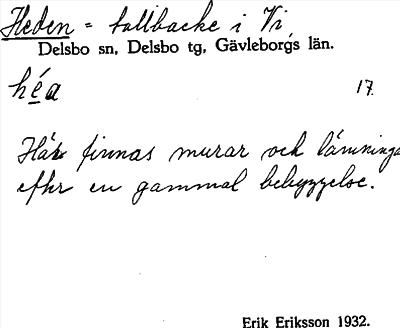 Heden = tallbacke i Vi,
Delsbo sn, Delsbo tg, Gävleborgs län.
héa 17.
Här finnas murar och lämninga
efter en gammal bebyggelse.
Erik Eriksson 1932.